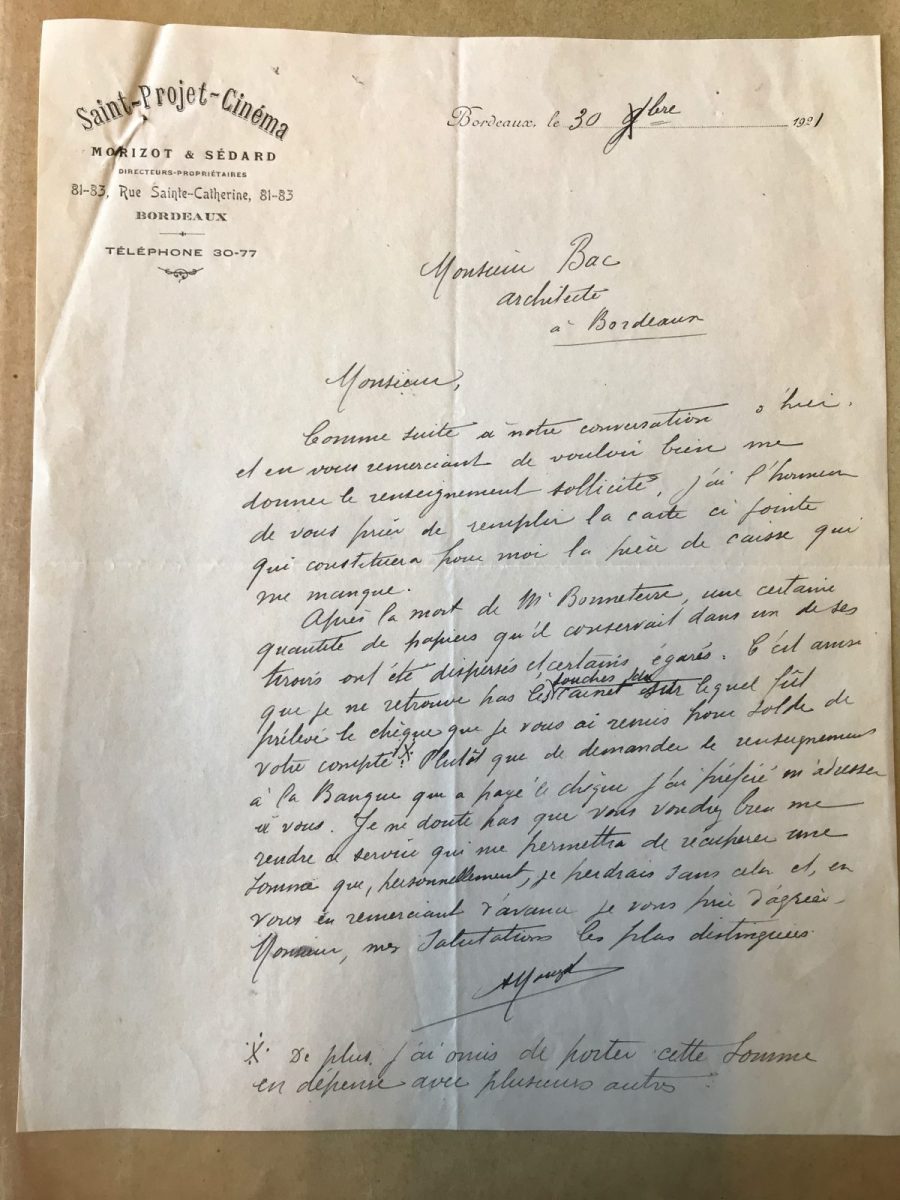 Saint-Projet-Cinéma
MORIZOT & SÉDARD
DIRECTEURS-PROPRIÉTAIRES
81-83, Rue Sainte-Catherine, 81-83
BORDEAUX
TÉLÉPHONE 30-77
Bordeaux, le 30 bre 1921
Monsieur Bac
architecte
à Bordeaux
Monsieur,
Comme suite à notre conversation d'hier,
et en vous remerciant de vouloir bien me
donner le renseignement sollicité, j'ai l'honneur
de vous prier de remplir la carte ci jointe
qui constituera pour moi la pièce de caisse qui
me manque.
Après la mort de Mr Bonneterre, une certaine
quantité de papiers qu'il conservait dans un de ses
tiroirs ont été dispersés et certains égarés. C'est ainsi
que je ne retrouve pas les souches du carnet sur lequel fût
prélevé le chèque que je vous ai remis pour solde de
votre compte X. Plutôt que de demander le renseignement
à la Banque qui a payé le chèque j'ai préféré m'adresser
à vous. Je ne doute pas que vous voudrez bien me
rendre ce service qui me permettra de récupérer une
somme que, personnellement, je perdrais sans cela et, en
vous en remerciant d'avance je vous prie d'agréer
Monsieur, mes salutations les plus distinguées.
X De plus, j'ai omis de porter cette somme
en dépense avec plusieurs autres